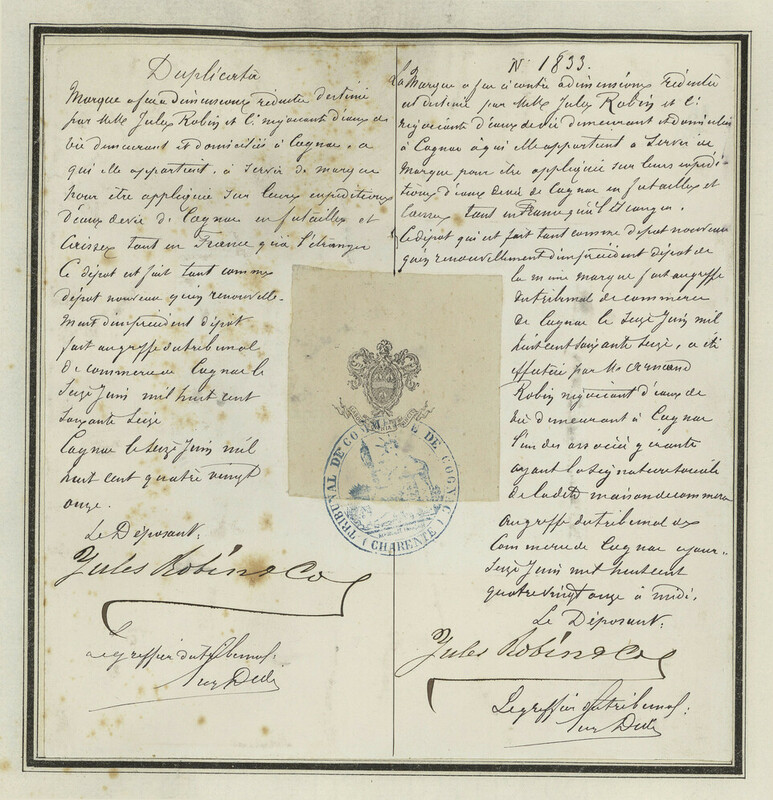 Duplicata
Marque a feu a dimensions réduites destiné
par MM Jules Robin et Cie négociants d'eaux de
vie demeurant et domiciliés à Cognac, a
qui elle appartient, à servir de marque
pour être appliquée sur leurs expéditions
d'eaux de vie de Cognac en futailles et
Caisses tant en France qu'à l'étranger
Ce dépôt est fait tant comme
dépôt nouveau qu'en renouvelle-
ment d'un précédent dépôt
fait au greffe du tribunal
de commerce de Cognac le
Seize Juin mil huit cent
soixante Seize
Cognac le Seize Juin mil
huit cent quatre vingt
onze.
Le Déposant:
Jules Robin & Co
Le greffier du tribunal:
N° 1833.
La Marque a feu ci contre a dimensions réduites
est destiné par MM Jules Robin et Cie
négociants d'eaux de vie demeurant et domiciliés
à Cognac à qui elle appartient a Servir de
Marque pour être appliquée sur leurs expédi-
tions d'eaux de vie de Cognac en futailles et
Caisses tant en France qu'à l'Etranger.
Ce dépôt qui est fait tant comme dépôt nouveau
qu'en renouvellement d'un précédent dépôt de
la même marque fait au greffe
du tribunal de commerce
de Cognac le Seize Juin mil
huit cent soixante Seize, a été
effectué par M. Armand
Robin négociant d'eaux de
vie demeurant à Cognac
l'un des associés gérants
ayant la Signature sociale
de la dite maison de commerce
au greffe du tribunal de
Commerce de Cognac ce jour
Seize Juin mil huit cent
quatre vingt onze à midi.
Le Déposant:
Jules Robin & Co
Le greffier du tribunal:
TRIBUNAL DE COMMERCE DE COGNAC
(CHARENTE)